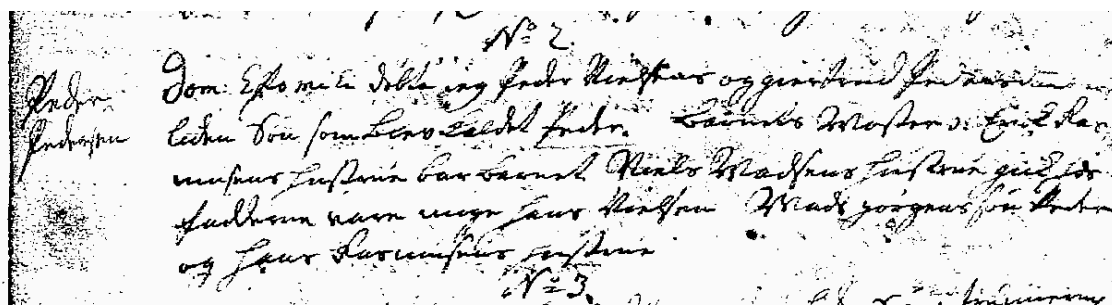 No 2.
Peder Dom. Esto mihi døbte ieg Peder Nielsens og giertrud Pedersdatter
Pedersen liden Søn som blev kaldet Peder. barnets Moster ɔ: Erick Ras
musens hustrue bar barnet Niels Madsens hustrue gick hos
fadderne vare unge hans Nielsen Mads Jörgensön Peder
og hans Rasmusens hustrue
No 3.